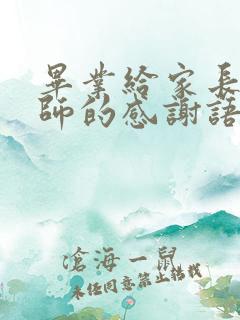 畢業給家長
師的感謝語
滄海一鼠
未经同意禁止搭载